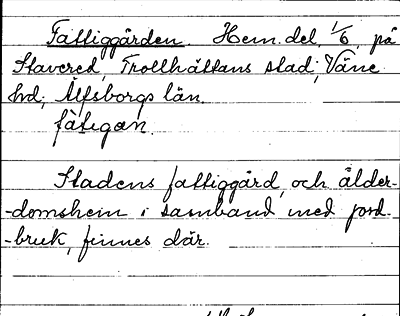 Fattiggården. Hem. del. 1/6, på
Stavered, Trollhättans stad; Väne
hd; Älfsborgs län.
fàtigan.
Stadens fattiggård, och ålder-
-domshem i samband med jord-
-bruk, finnes där.